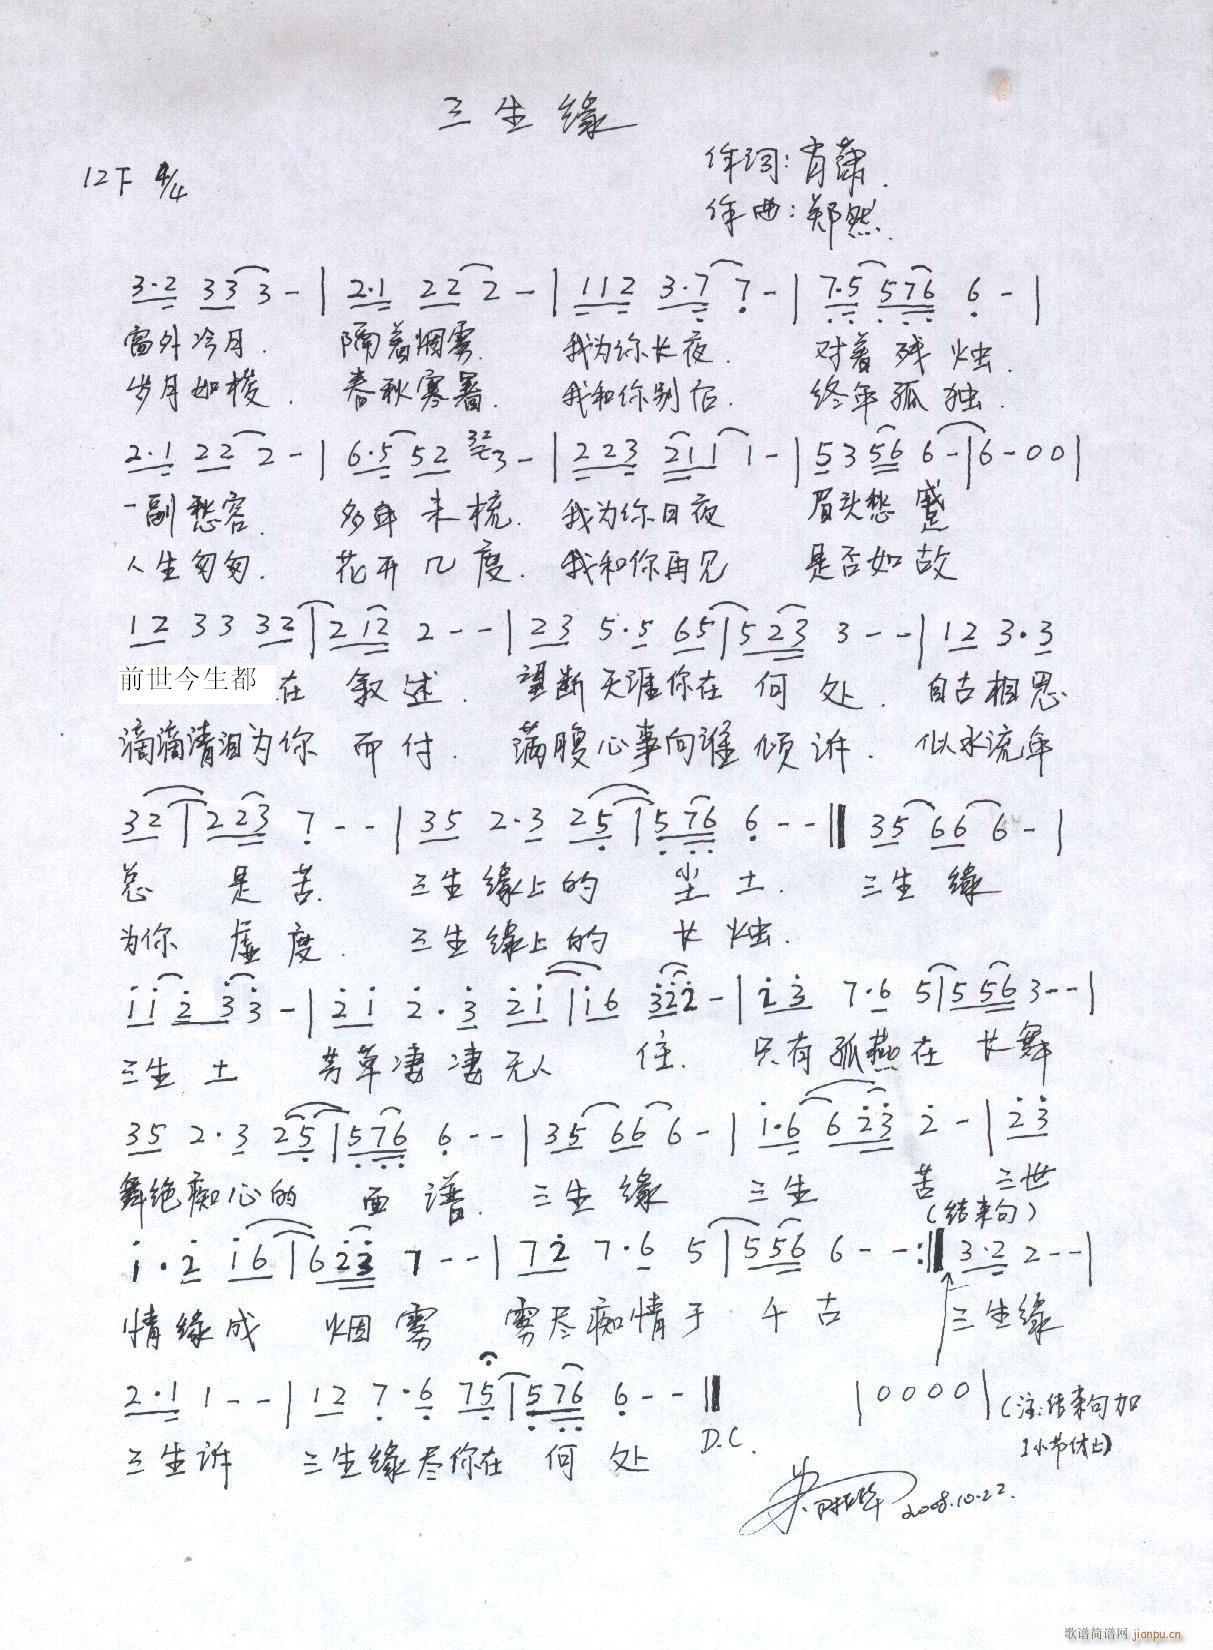 三生缘
作词:肖萧.
12下 4/4
作曲:郑然.
3·2 33 3 - | 2·1 22 2 - | 112 3·7 7 - | 7·5 576 6 - |
窗外冷月. 隔着烟雾. 我为你长夜. 对着残烛.
岁月如梭. 春秋寒暑. 我和你别后. 终年孤独.
2·1 22 2 - | 6·5 52 32 3 - | 223 211 1 - | 5 3 56 6 - | 6 - 0 0 |
一副愁容. 多年未梳. 我为你日夜 眉头愁蹙
人生匆匆. 花开几度. 我和你再见 是否如故
12 3 3 32 | 212 2 - - | 23 5·5 65 | 523 3 - - | 12 3·3
前世今生都在 叙述. 望断天涯你在 何处. 自古相思
滴滴清泪为你 而付. 满腹心事向谁倾诉. 似水流年
32 | 223 7 - - | 35 2·3 25 | 576 6 - - || 35 66 6 - |
总 是苦. 三生缘上的 尘土. 三生缘
为你 虚度. 三生缘上的 长烛.
11 2 3 3 - | 21 2·3 21 | 16 322 - | 23 7·6 5 | 556 3 - - |
三生土 芳草凄凄无人 住. 只有孤燕在 长舞
35 2·3 25 | 576 6 - - | 35 66 6 - | 1·6 623 2 - | 23
舞绝痴心的 面谱. 三生缘 三生 苦 三世
(结束句)
1·2 16 | 623 7 - - | 72 7·6 5 | 556 6 - - :|| 3·2 2 - - |
情缘成 烟雾 雾尽痴情于 千古 三生缘
2·1 1 - - | 12 7·6 75 | 576 6 - - || | 0 0 0 0 | (注:结束句加
三生诉 三生缘尽你在 何处 D.C. 1小节休止)
2008.10.22.
歌谱简谱网 jianpu.cn